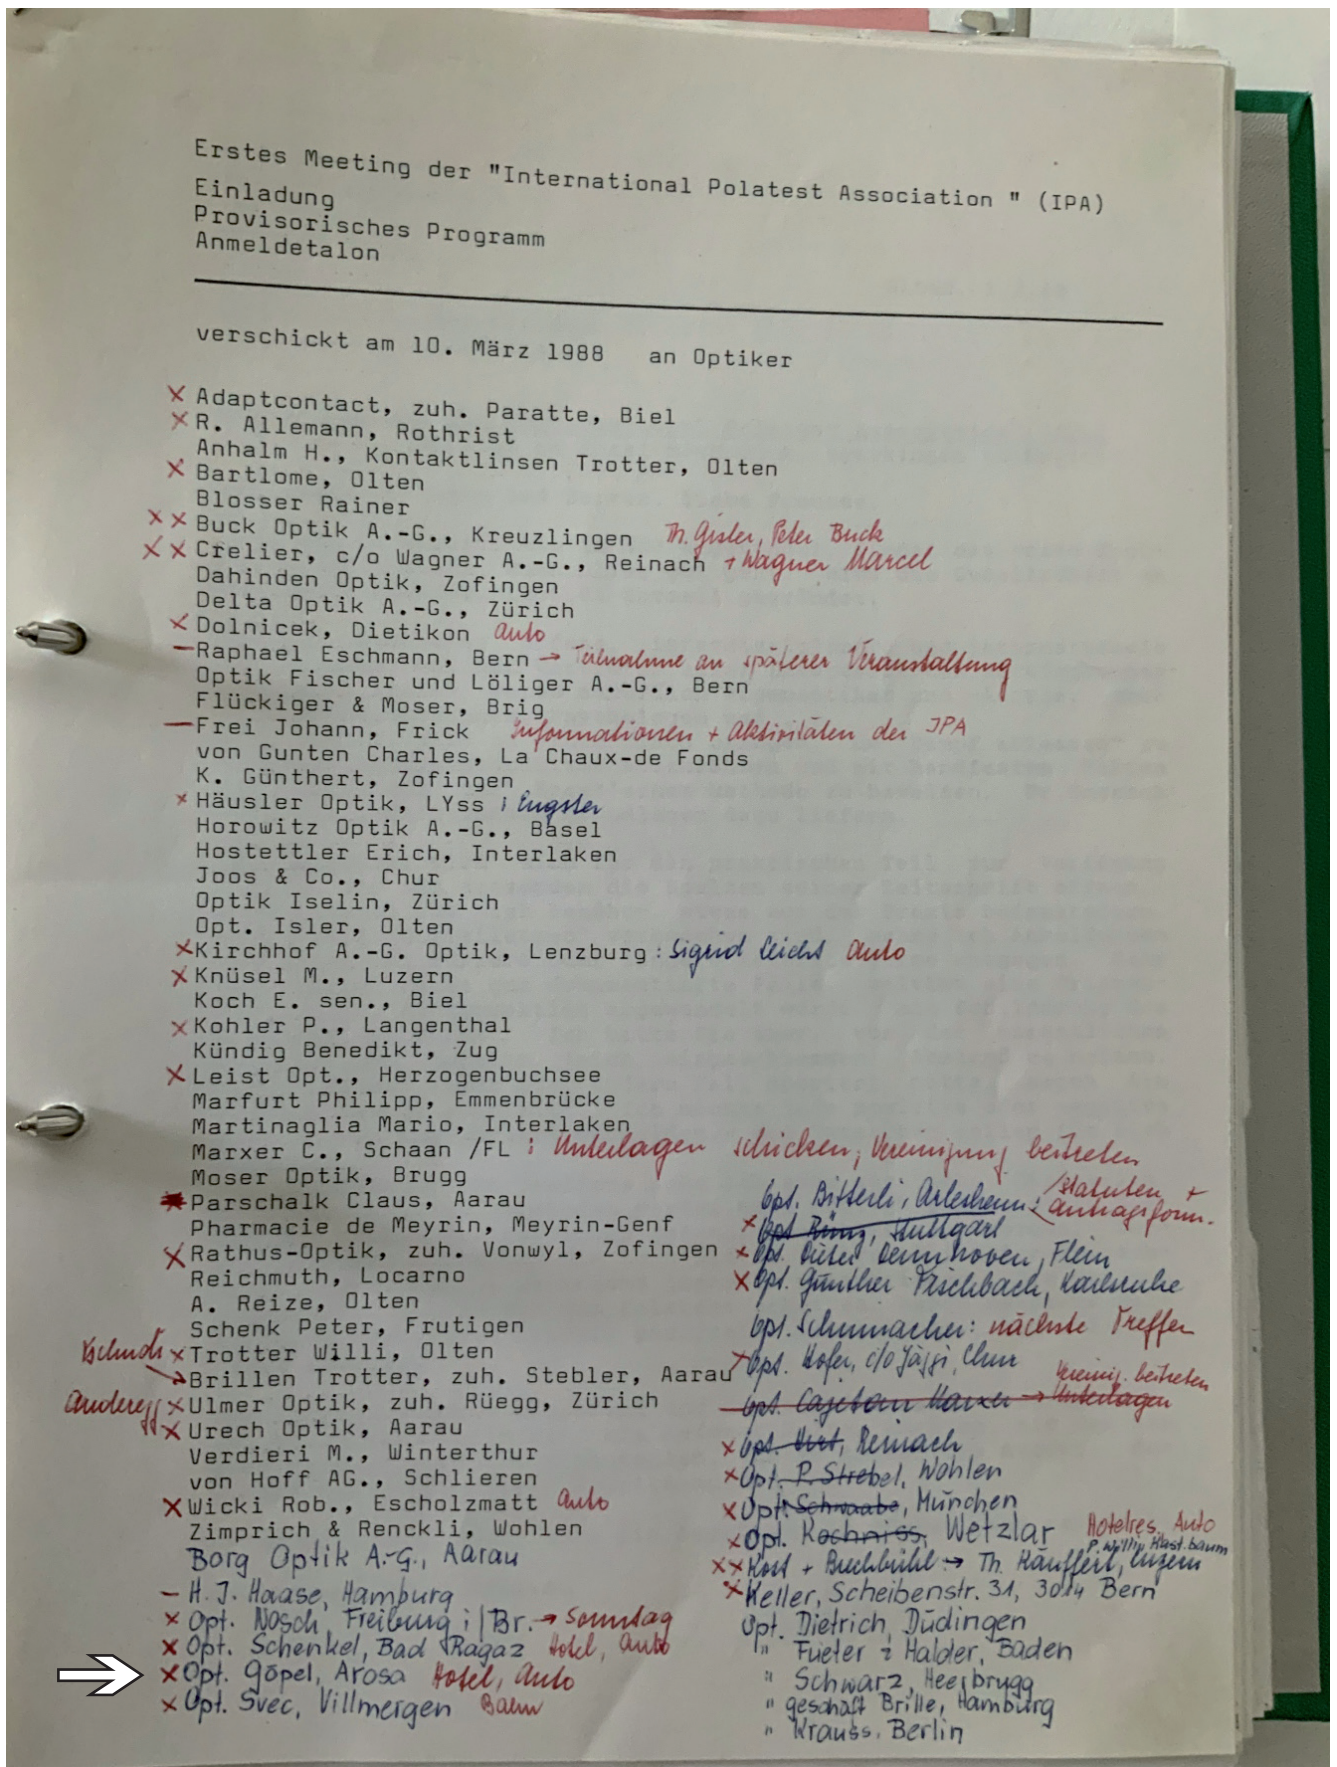 Erstes Meeting der "International Polatest Association " (IPA)
Einladung
Provisorisches Programm
Anmeldetalon
verschickt am 10. März 1988 an Optiker
x Adaptcontact, zuh. Paratte, Biel
x R. Allemann, Rothrist
Anhalm H., Kontaktlinsen Trotter, Olten
x Bartlome, Olten
Blosser Rainer
x x Buck Optik A.-G., Kreuzlingen Th. Gisler, Peter Buck
x x Crelier, c/o Wagner A.-G., Reinach + Wagner Marcel
Dahinden Optik, Zofingen
Delta Optik A.-G., Zürich
x Dolnicek, Dietikon Auto
– Raphael Eschmann, Bern → Teilnahme an späterer Veranstaltung
Optik Fischer und Löliger A.-G., Bern
Flückiger & Moser, Brig
– Frei Johann, Frick Informationen + Aktivitäten der IPA
von Gunten Charles, La Chaux-de Fonds
K. Günthert, Zofingen
x Häusler Optik, LYss : Engster
Horowitz Optik A.-G., Basel
Hostettler Erich, Interlaken
Joos & Co., Chur
Optik Iselin, Zürich
Opt. Isler, Olten
x Kirchhof A.-G. Optik, Lenzburg : Sigrid Leicht Auto
x Knüsel M., Luzern
Koch E. sen., Biel
x Kohler P., Langenthal
Kündig Benedikt, Zug
x Leist Opt., Herzogenbuchsee
Marfurt Philipp, Emmenbrücke
Martinaglia Mario, Interlaken
Marxer C., Schaan /FL : Unterlagen schicken, Vereinigung beitreten
Moser Optik, Brugg
x Parschalk Claus, Aarau
Pharmacie de Meyrin, Meyrin-Genf
x Rathus-Optik, zuh. Vonwyl, Zofingen
Reichmuth, Locarno
A. Reize, Olten
Schenk Peter, Frutigen
x Trotter Willi, Olten
Brillen Trotter, zuh. Stebler, Aarau
Anderegg x Ulmer Optik, zuh. Rüegg, Zürich
x Urech Optik, Aarau
Verdieri M., Winterthur
von Hoff AG., Schlieren
x Wicki Rob., Escholzmatt Auto
Zimprich & Renckli, Wohlen
Borg Optik A.-G., Aarau
– H. J. Haase, Hamburg
x Opt. Nosch, Freiburg i/Br. → Sonntag
x Opt. Schenkel, Bad Ragaz Hotel, Auto
x Opt. Göpel, Arosa Hotel, Auto
x Opt. Svec, Villmergen Bahn
Opt. Bitterli, Arlesheim : Statuten +
Antragsform.
x Opt. Stuttgart
x Opt. Dieter Flein
x Opt. Günther Fischbach, Karlsruhe
Opt. Schumacher: nächste Treffen
Opt. Hofer, c/o Jäggi, Chur
Opt. Cajetan Marxer → Unterlagen
Vereinig. beitreten
x Opt. Hirt, Reinach
x Opt. P. Strebel, Wohlen
x Opt. Schwaabe, München
x Opt. Kochniss, Wetzlar Hotelres. Auto
x x Kost + Brechbühl → Th. Käuffert, Luzern
x Keller, Scheibenstr. 31, 3014 Bern
Opt. Dietrich, Düdingen
" Fueter & Halder, Baden
" Schwarz, Heerbrugg
" geschäft Brille, Hamburg
" Krauss. Berlin